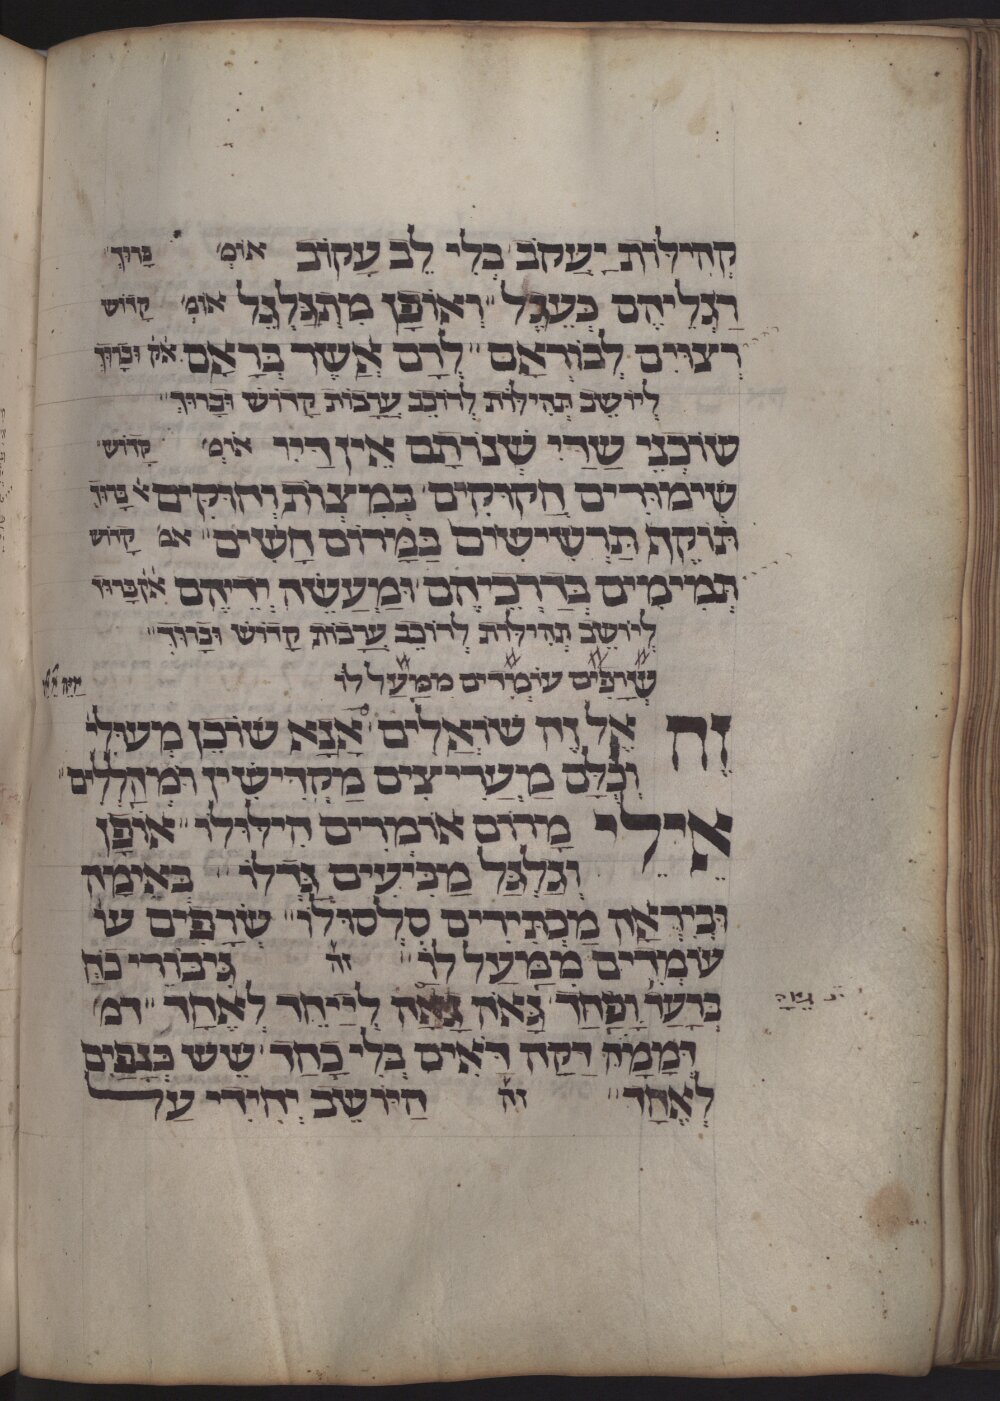 קְהִילּוֹת יַעֲקֹב בְּלִי לֵב עָקוֹב אוֹמְ' בָּרוּךְ
רַגְלֵיהֶם כְּעֵגֶל וְאוֹפַן מִתְגַּלְגֵּל אומ' קָדוֹשׁ
רְצוּיִם לְבוֹרְאָם לְרָם אֲשֶׁר בְּרָאָם אק' וּבָרוּךְ
לְיוֹשֵׁב תְּהִילּוֹת לְרוֹכֵב עֲרָבוֹת קָדוֹשׁ וּבָרוּךְ
שׁוֹכְנֵי שַׁדַּי שְׁנוֹתָם אֵין דַּיי אומ' קָדוֹשׁ
שִׁימּוּרִים חֲקוּקִים בְּמִצְוֹת וְחוּקִּים א' בָּרוּךְ
תּוֹקֶף תַּרְשִׁישִׁים בַּמָּרוֹם חָשִׁים או' קָדוֹשׁ
תְּמִימִים בְּדַרְכֵיהֶם וּמַעֲשֵׂה יְדֵיהֶם אק' וּבָרוּךְ
לְיוֹשֵׁב תְּהִילּוֹת לְרוֹכֵב עֲרָבוֹת קָדוֹשׁ וּבָרוּךְ
שְׂרָפִים עוֹמְדִים מִמַּעַל לוֹ
זֶה אֶל זֶה שׁוֹאֲלִים אָנָא שׁוֹכֵן מְעוּלֵי
וְכֻלָּם מַעֲרִיצִים מַקְדִּישִׁין וּמְהַלְלִים
אֵילֵי מָרוֹם אוֹמְרִים הִילּוּלוֹ אוֹפַן
וְגַלְגַּל מַבִּיעִים גָּדְלוֹ בְּאֵימָה
וּבְיִרְאָה מַכְתִּירִים סִלְסוּלוֹ שְׂרָפִים עו
עוֹמְדִים מִמַּעַל לוֹ זה גִּיבּוֹרֵי כֹחַ
בְּרַעַד וּפַחַד גָּאֹה גָּאָה לְיַיחֵד לְאֶחָד דמ
וּמַמָּה דַקָּה רֹאִים בְּלִי כַחַד שֵׁשׁ כְּנָפַיִם
לְאֶחָד זה הַיּוֹשֵׁב יְחִידִי עַל